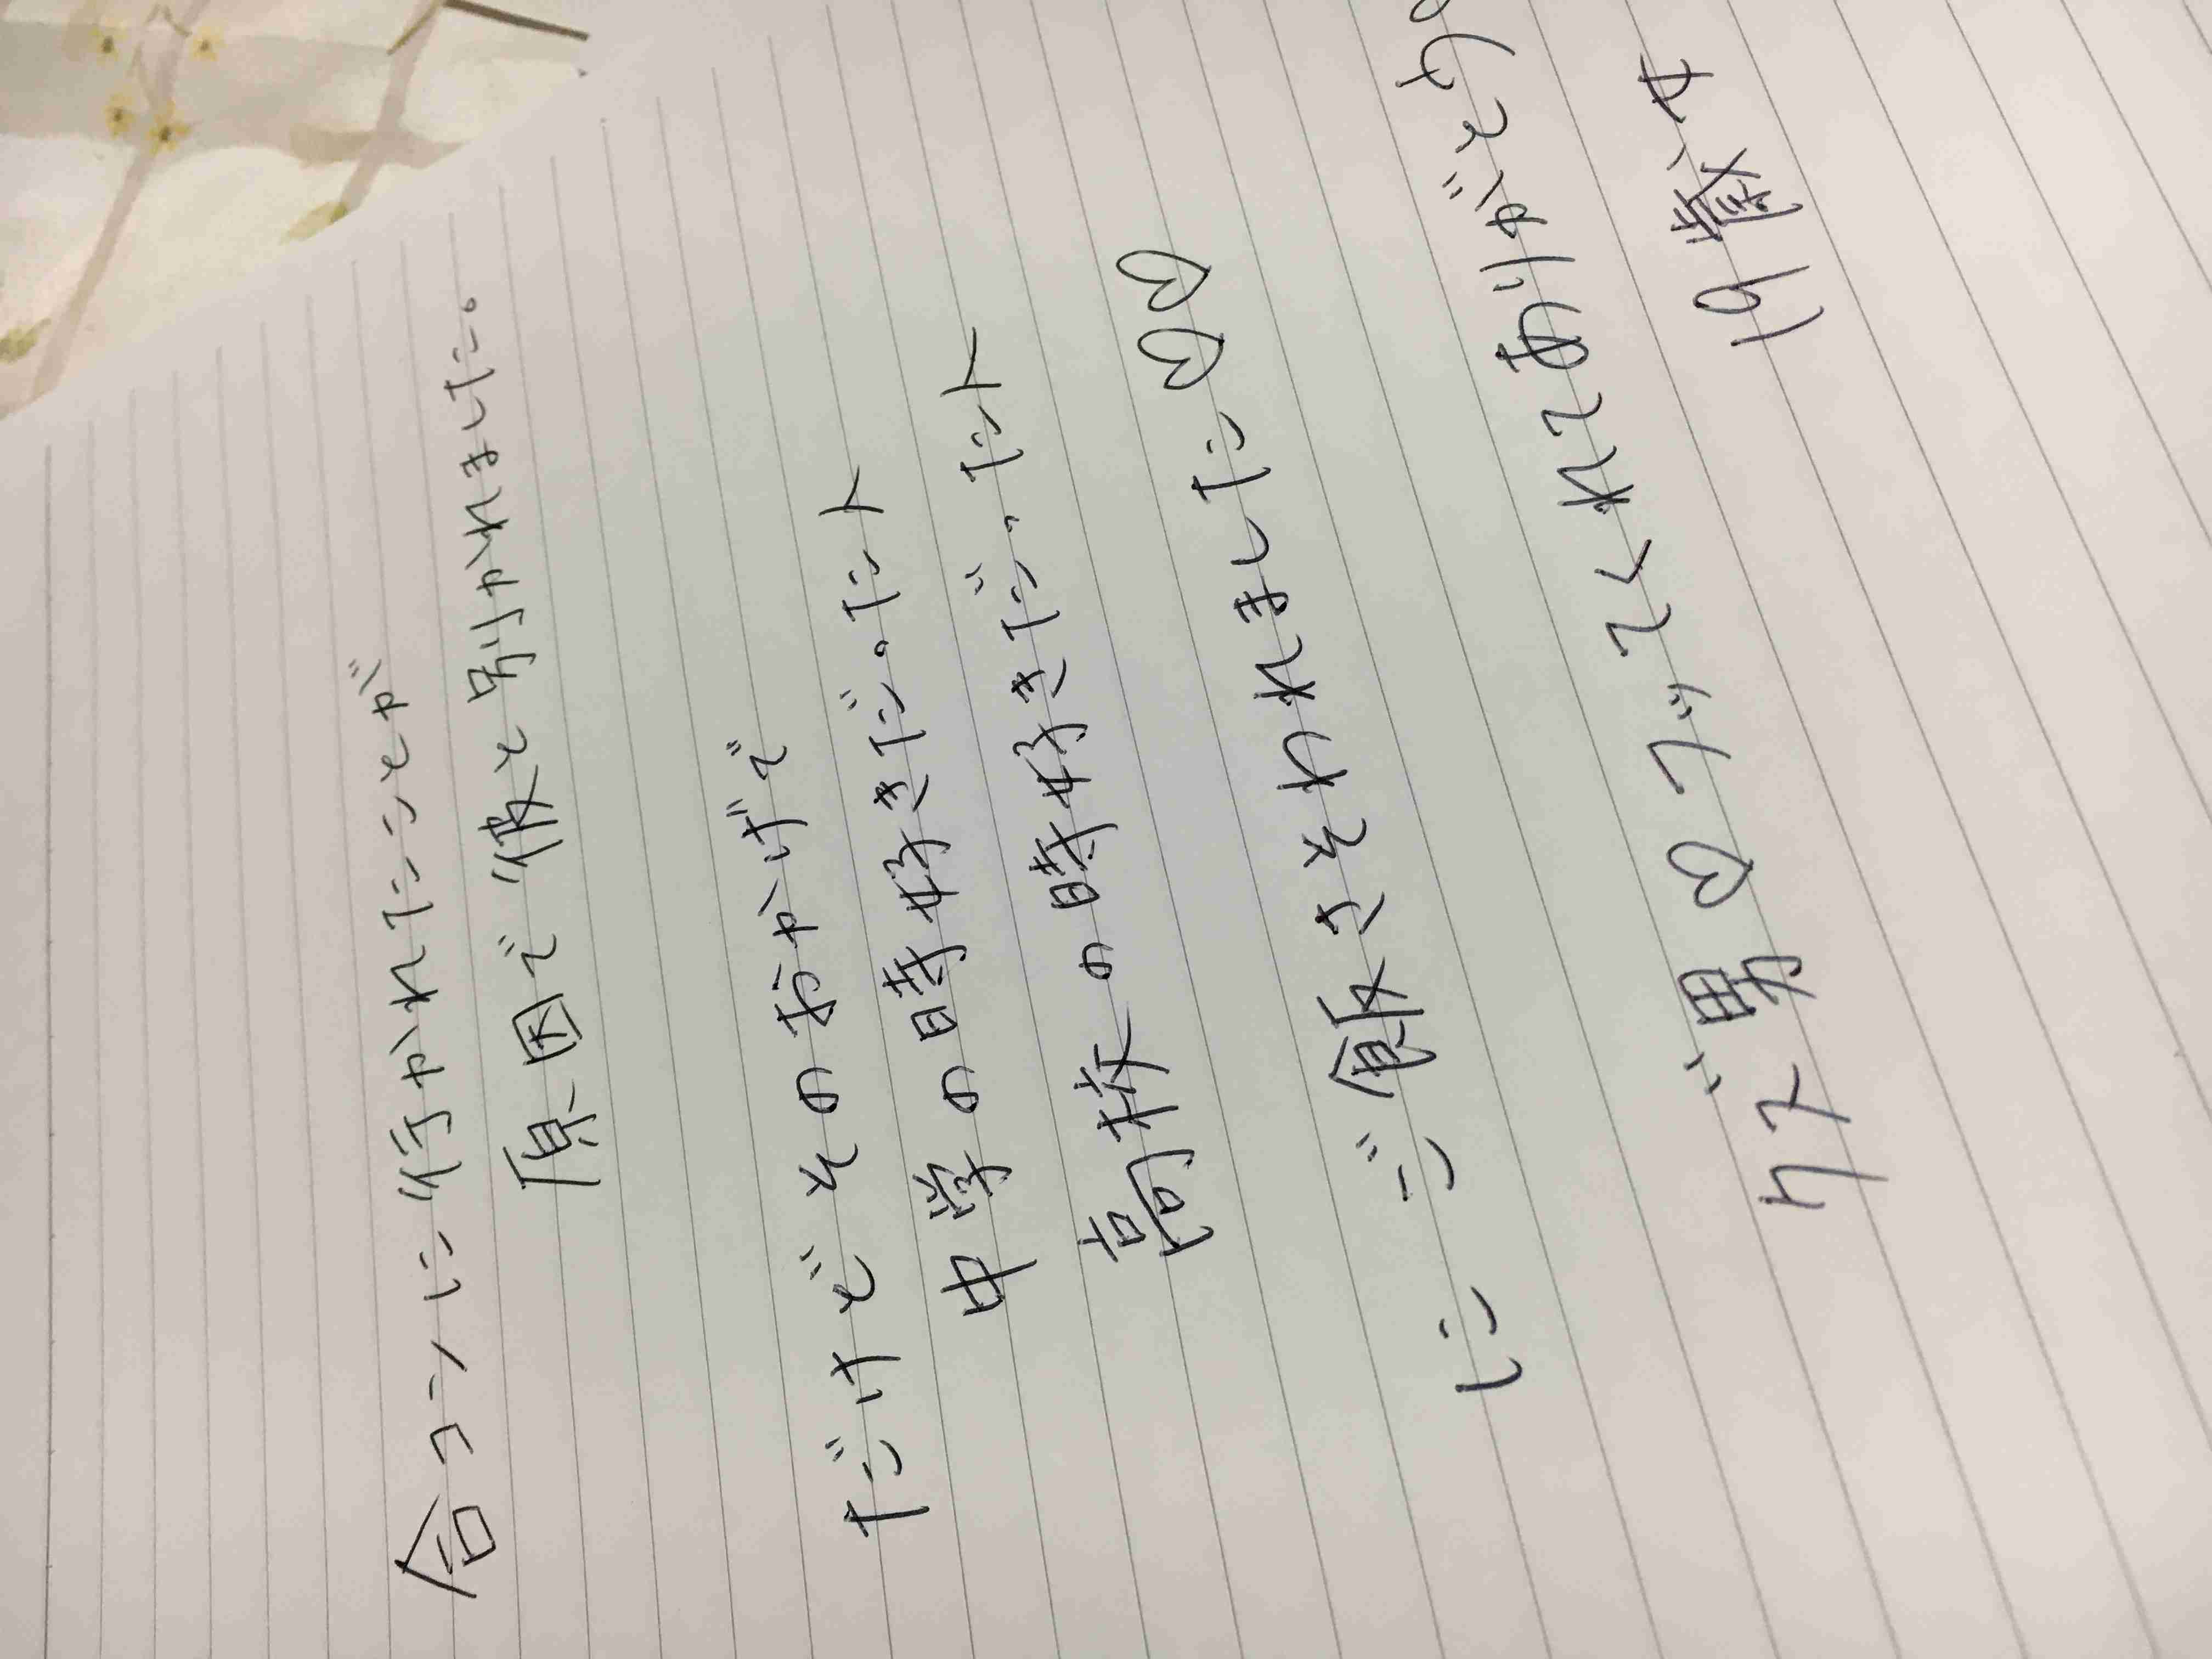 合コンに行かれたことが
原因で彼と別かれました。
だけどそのおかげで
中学の時好きだったト
高校の時好きだったト
に ご飯さそわれました♡♡
クズ男♡フッてくれてありがとう。
19歳女